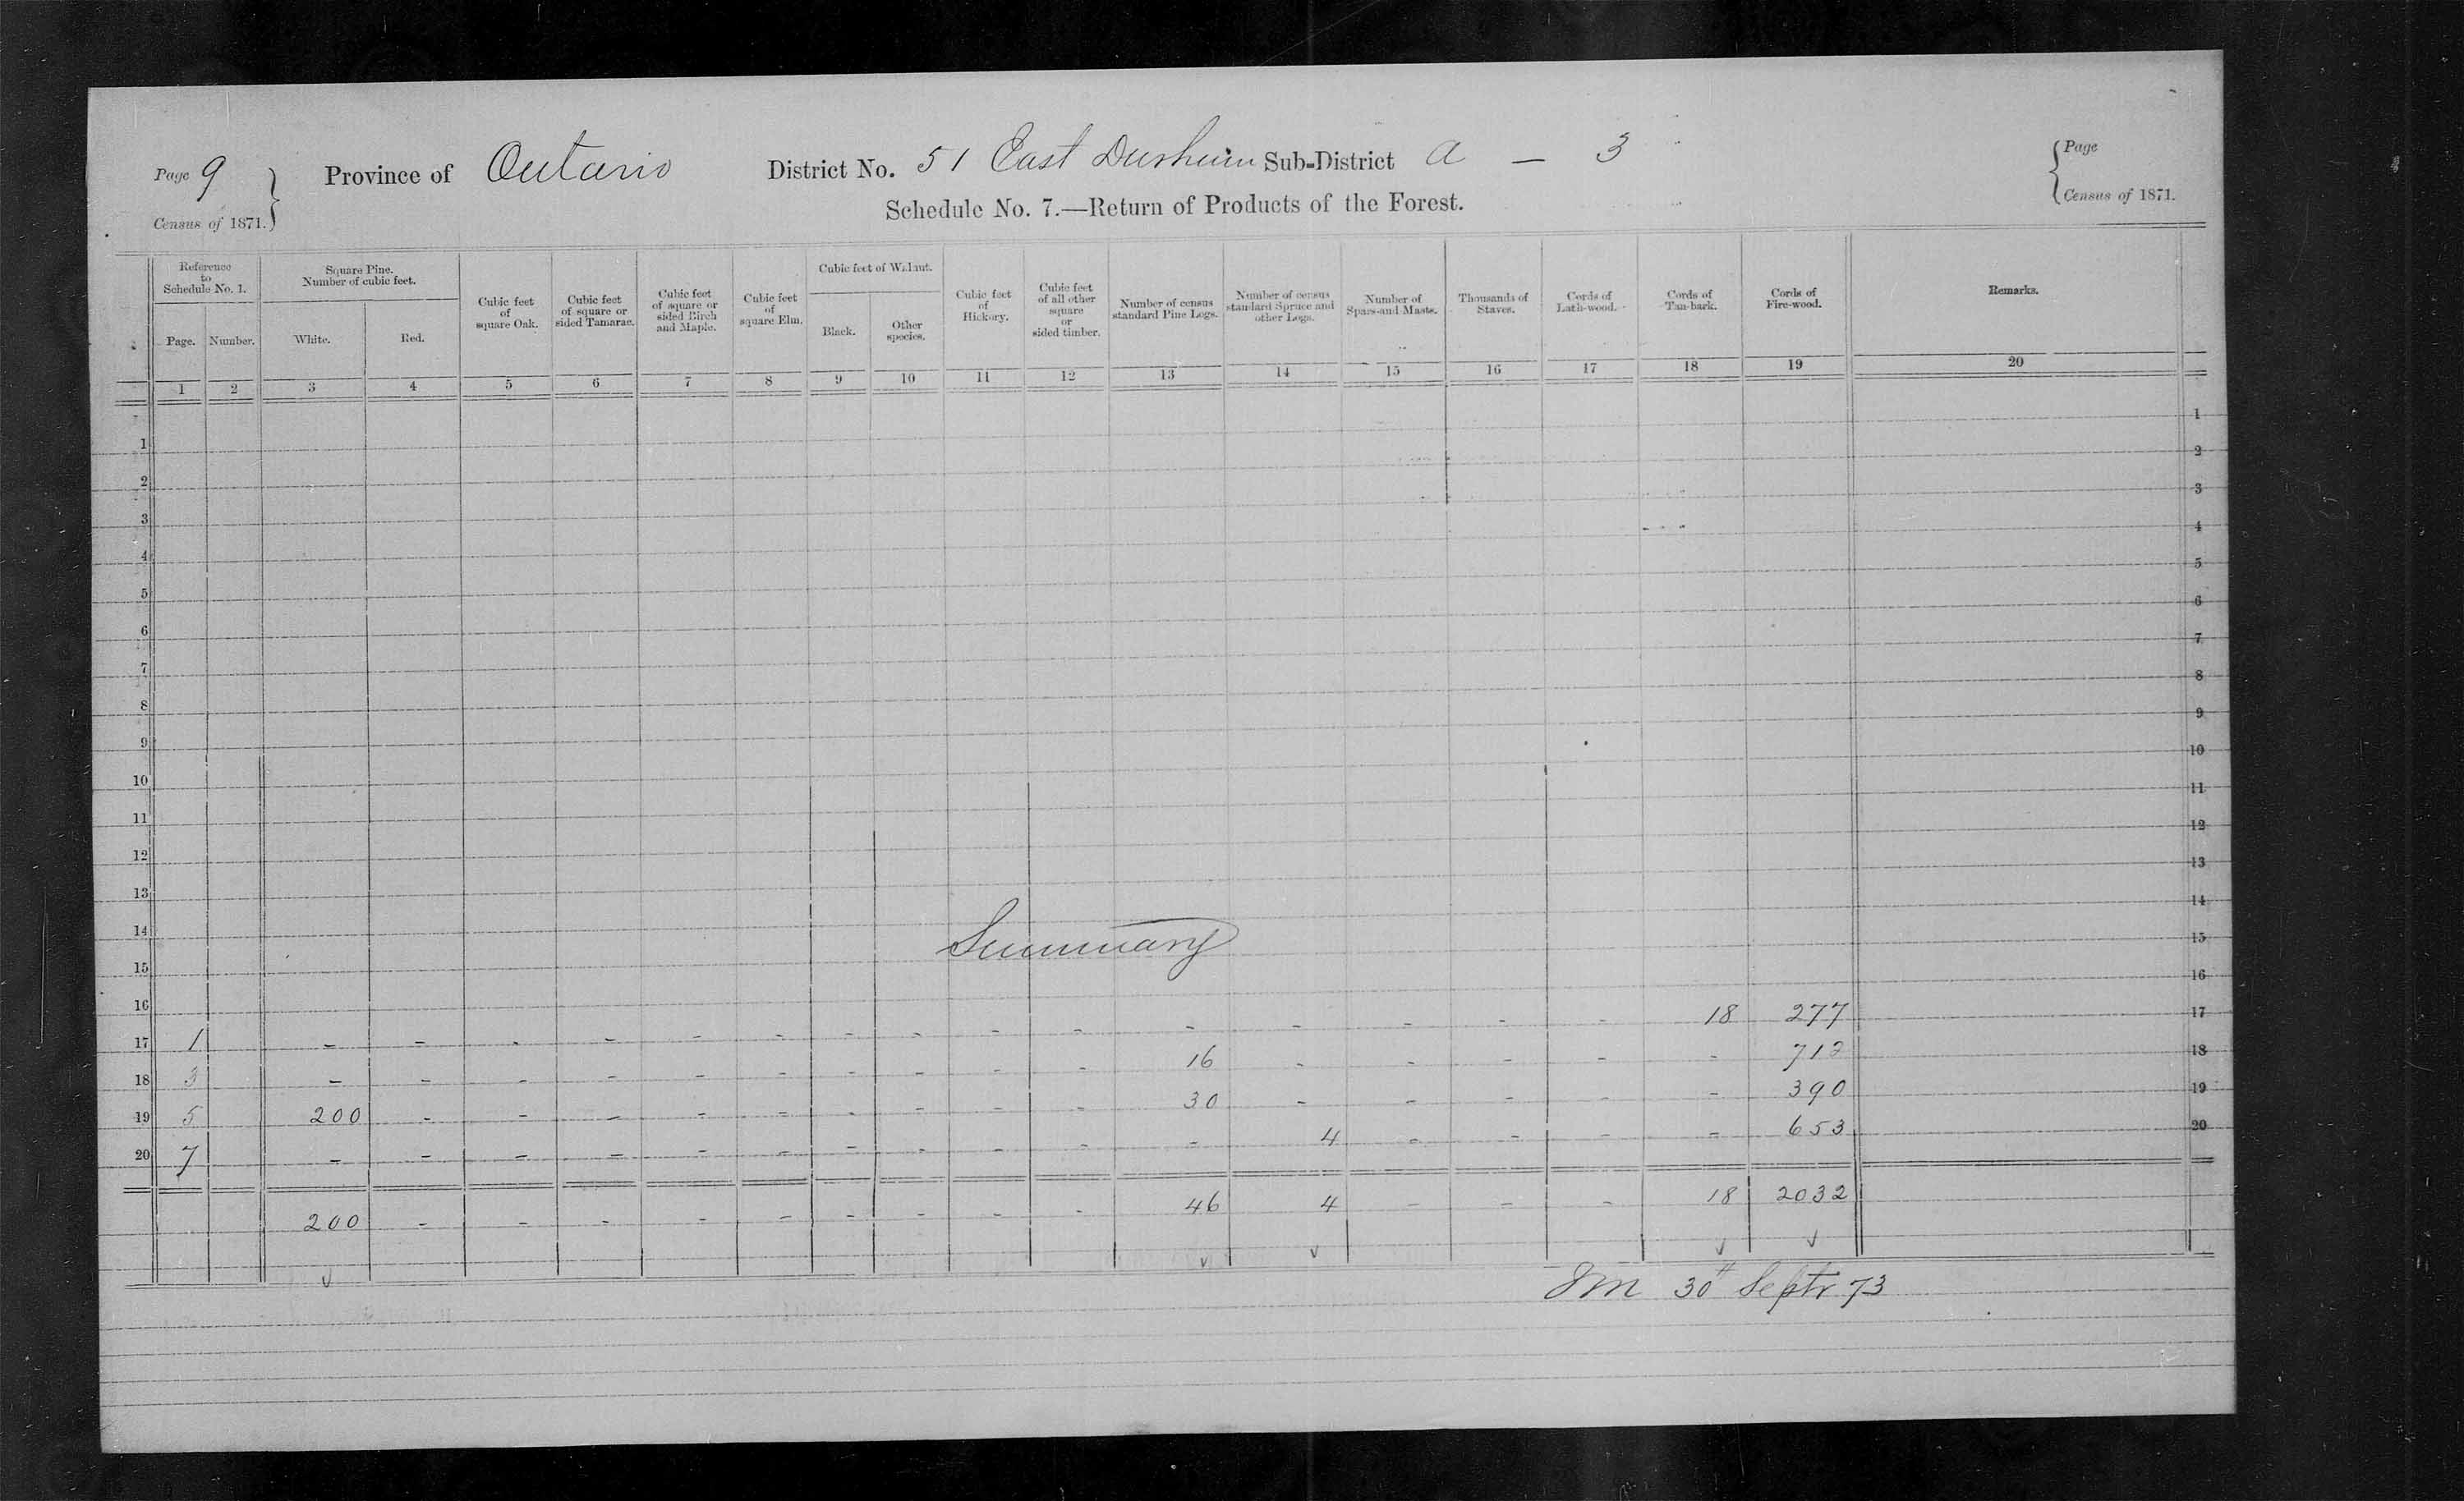 Page 9 Province of Ontario District No. 51 East Durham Sub-District A — 3 Page
Census of 1871. Census of 1871.
Schedule No. 7.—Return of Products of the Forest.
Reference to Schedule No. 1.
Page. Number.
Square Pine. Number of cubic feet.
White. Red.
Cubic feet of square Oak.
Cubic feet of square or sided Tamarac.
Cubic feet of square or sided Birch and Maple.
Cubic feet of square Elm.
Cubic feet of Walnut.
Black. Other species.
Cubic feet of Hickory.
Cubic feet of all other square or sided timber.
Number of census standard Pine Logs.
Number of census standard Spruce and other Logs.
Number of Spars and Masts.
Thousands of Staves.
Cords of Lath-wood.
Cords of Tan-bark.
Cords of Fire-wood.
Remarks.
1 2 3 4 5 6 7 8 9 10 11 12 13 14 15 16 17 18 19 20
1 1
2 2
3 3
4 4
5 5
6 6
7 7
8 8
9 9
10 10
11 11
12 12
13 13
14 14
Summary
15 15
16 16
17 1 - - - - - - - - - - - - - - - 18 277 17
18 3 - - - - - - - - - - 16 - - - - - 712 18
19 5 200 - - - - - - - - - 30 - - - - - 390 19
20 7 - - - - - - - - - - - 4 - - - - 653 20
200 - - - - - - - - - 46 4 - - - 18 2032
30th Septr 73